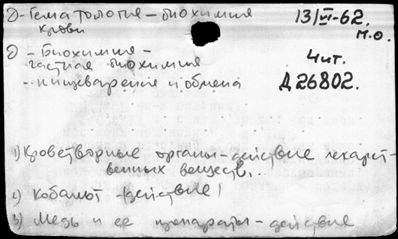 Д-Гематология-биохимия 13/VI-62.
крови М.О.
Д-Биохимия-
частная биохимия Чит.
-- пищеварения и обмена Д26802.
1) Кроветворные органы-действие лекарст-
венных веществ.
2) Кобальт-действие!
3) Медь и ее препараты-действие